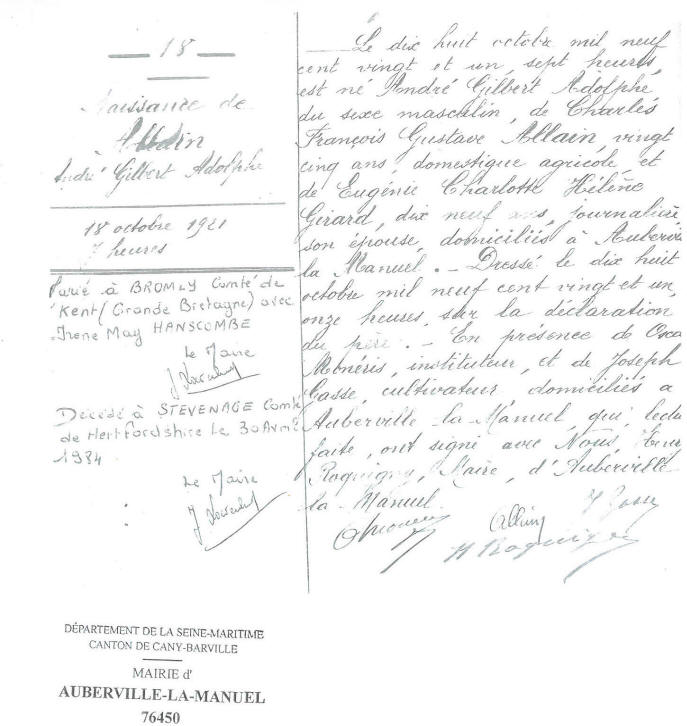 18
Naissance de
Allain
André Gilbert Adolphe
18 octobre 1921
7 heures
Marié à BROMLY Comté de
Kent (Grande Bretagne) avec
Irene May HANSCOMBE
Le Maire
Décédé à STEVENAGE Comté
de Hertfordshire Le 30 Avril
1984
Le Maire
Le dix huit octobre mil neuf
cent vingt et un, sept heures,
est né André Gilbert Adolphe
du sexe masculin, de Charles
François Gustave Allain, vingt
cinq ans, domestique agricole et
de Eugénie Charlotte Hélène
Girard, dix neuf ans, journalière,
son épouse, domiciliés à Aubervi
la Manuel. _ Dressé le dix huit
octobre mil neuf cent vingt et un,
onze heures, sur la déclaration
du père. _ En présence de Osca
Monéris, instituteur, et de Joseph
Gasse, cultivateur domiciliés à
Auberville-la-Manuel, qui, lectu
faite, ont signé avec Nous, Henr
Roquigny, Maire, d'Auberville
la-Manuel.
Allain
J Gasse
H Roquigny
DÉPARTEMENT DE LA SEINE-MARITIME
CANTON DE CANY-BARVILLE
MAIRIE d'
AUBERVILLE-LA-MANUEL
76450